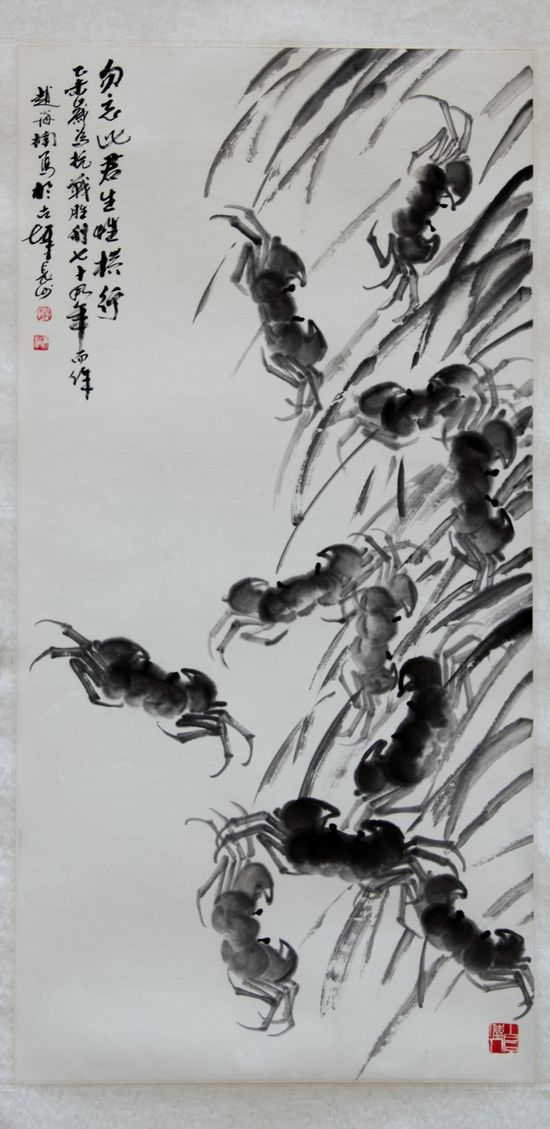 勿忘此君生性横行
乙未岁为抗战胜利七十周年而作
赵海楠写于古坛